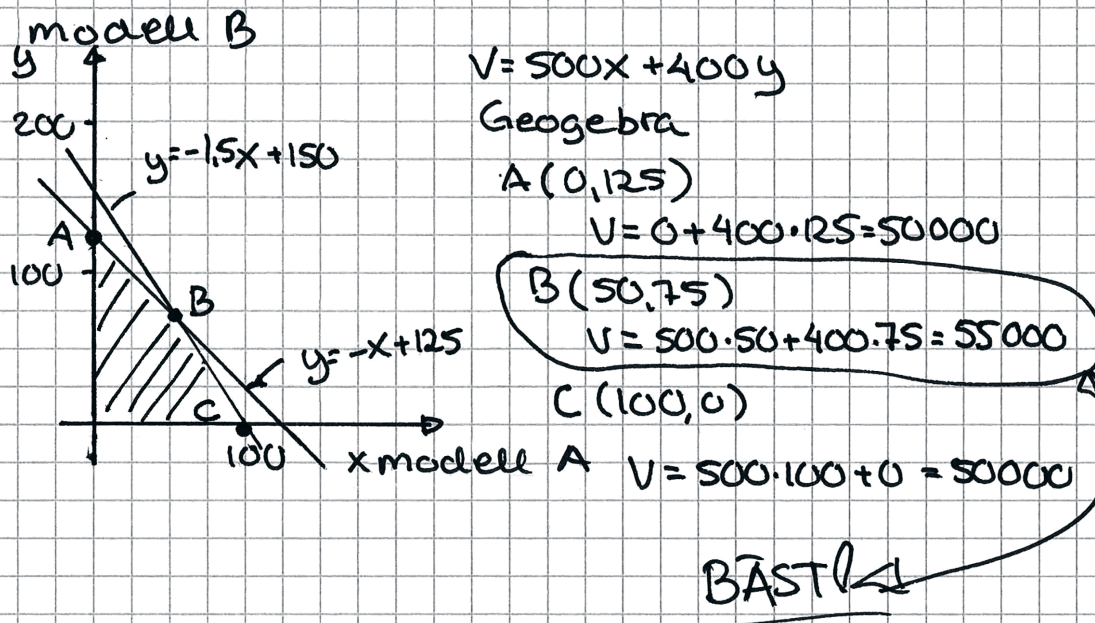 modell B
y
200
y=-1,5x+150
A
100
B
y=-x+125
C
100
x modell A
V=500x+400y
Geogebra
A(0,125)
V=0+400·125=50000
B(50,75)
V=500·50+400·75=55000
C(100,0)
V=500·100+0=50000
BÄST